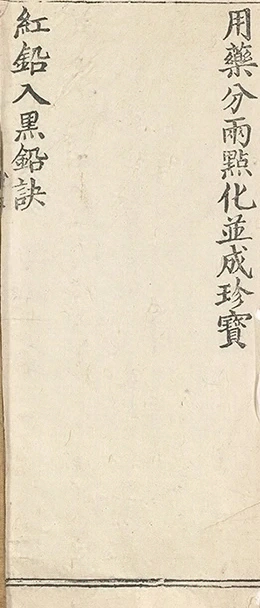 用藥分兩點化並成珍寳
紅鉛入黑鉛訣